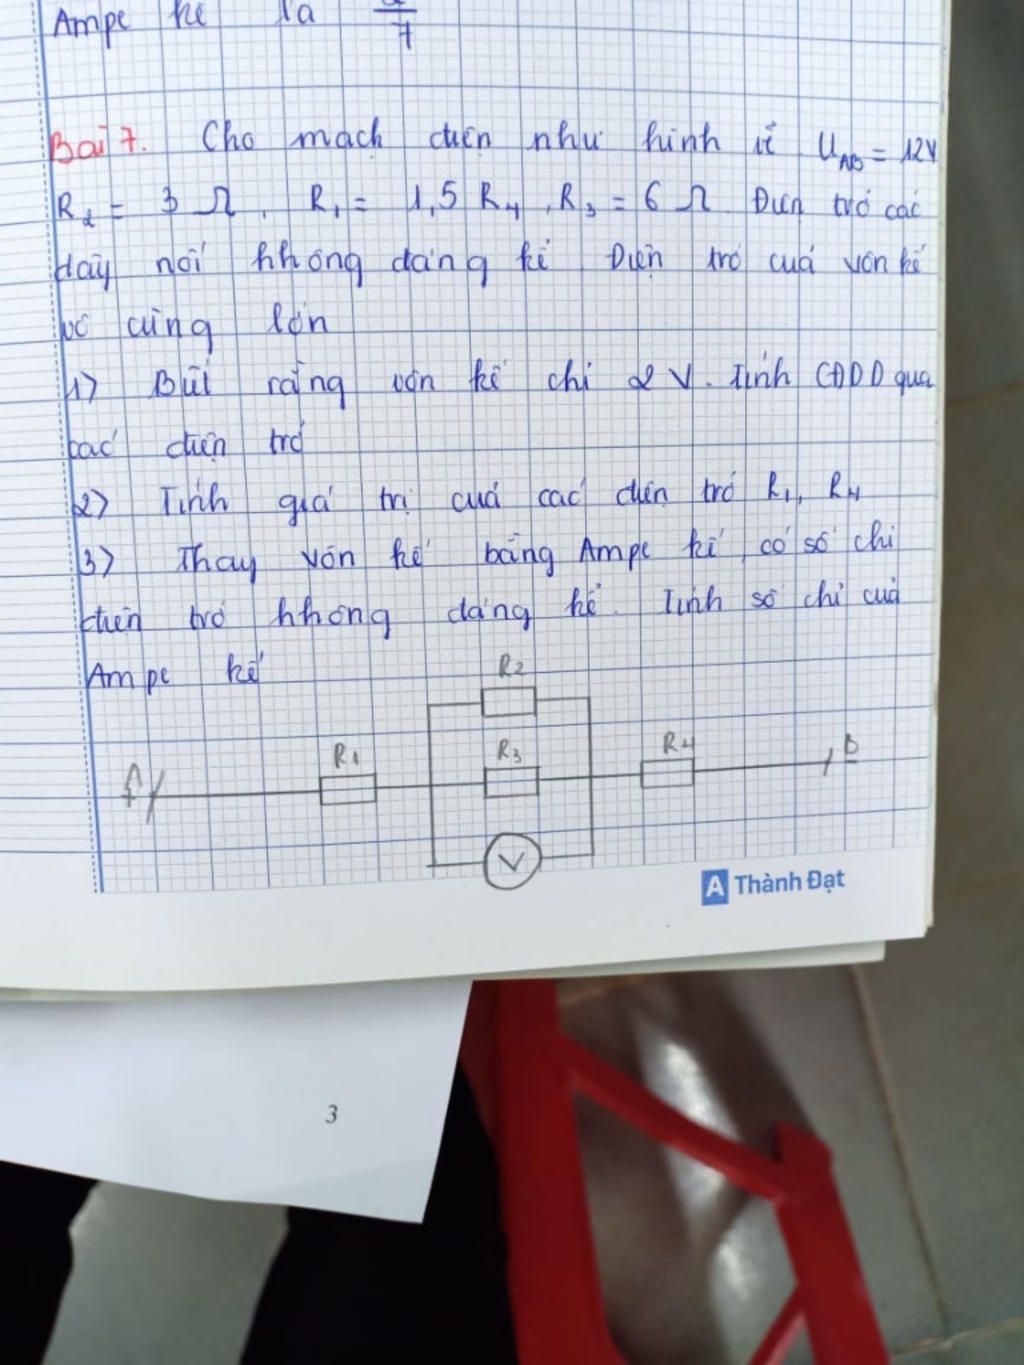 Ampe kế là 2/7
Bài 7. Cho mạch điện như hình vẽ UAB = 12V
R2 = 3 Ω, R1 = 1,5 R4, R3 = 6 Ω. Điện trở các
dây nối không đáng kể Điện trở của vôn kế
vô cùng lớn
1) Biết rằng vôn kế chỉ 2V. Tính CĐDĐ qua
các điện trở
2) Tính giá trị của các điện trở R1, R4
3) Thay vôn kế bằng Ampe kế có số chỉ
điện trở không đáng kể. Tính số chỉ của
Ampe kế
R2
R1 R3 R4
A B
V
A Thành Đạt
3